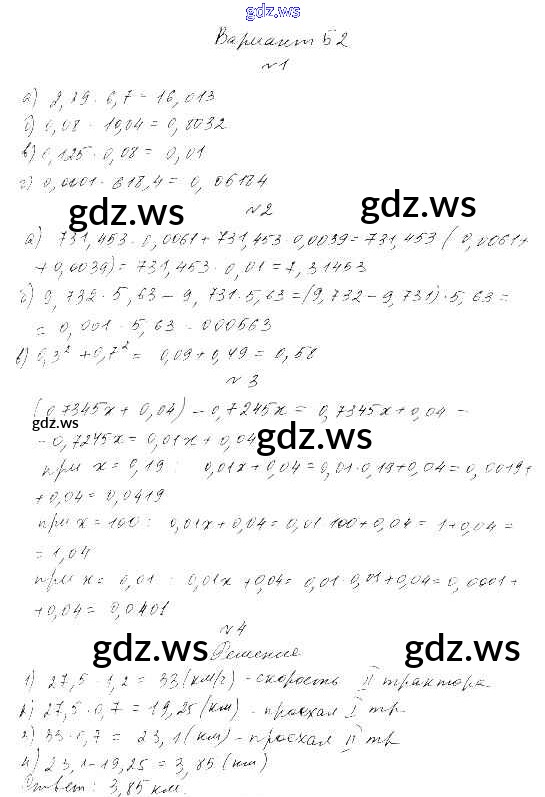 gdz.ws
Вариант Б2
№1
а) 2,39 · 6,7 = 16,013
б) 0,08 · 10,04 = 0,8032
в) 0,125 · 0,08 = 0,01
г) 0,0001 · 618,4 = 0,06184
gdz.ws
gdz.ws
№2
а) 731,453 · 0,0061 + 731,453 · 0,0039 = 731,453 (0,0061 +
+ 0,0039) = 731,453 · 0,01 = 7,31453
б) 9,732 · 5,63 – 9,731 · 5,63 = (9,732 – 9,731) · 5,63 =
= 0,001 · 5,63 = 000563
в) 0,3² + 0,7² = 0,09 + 0,49 = 0,58
№3
(0,7345x + 0,04) – 0,7245x = 0,7345x + 0,04 –
gdz.ws
– 0,7245x = 0,01x + 0,04
gdz.ws
при x = 0,19 : 0,01x + 0,04 = 0,01 · 0,19 + 0,04 = 0,0019 +
+ 0,04 = 0,0419
при x = 100 : 0,01x + 0,04 = 0,01 · 100 + 0,04 = 1 + 0,04 =
= 1,04
при x = 0,01 : 0,01x + 0,04 = 0,01 · 0,01 + 0,04 = 0,0001 +
+ 0,04 = 0,0401
№4
Решение
gdz.ws
gdz.ws
1) 27,5 · 1,2 = 33 (км/ч) - скорость II трактора
2) 27,5 · 0,7 = 19,25 (км) - проехал I тр.
3) 33 · 0,7 = 23,1 (км) - проехал II тр
4) 23,1 – 19,25 = 3,85 (км)
Ответ: 3,85 км.